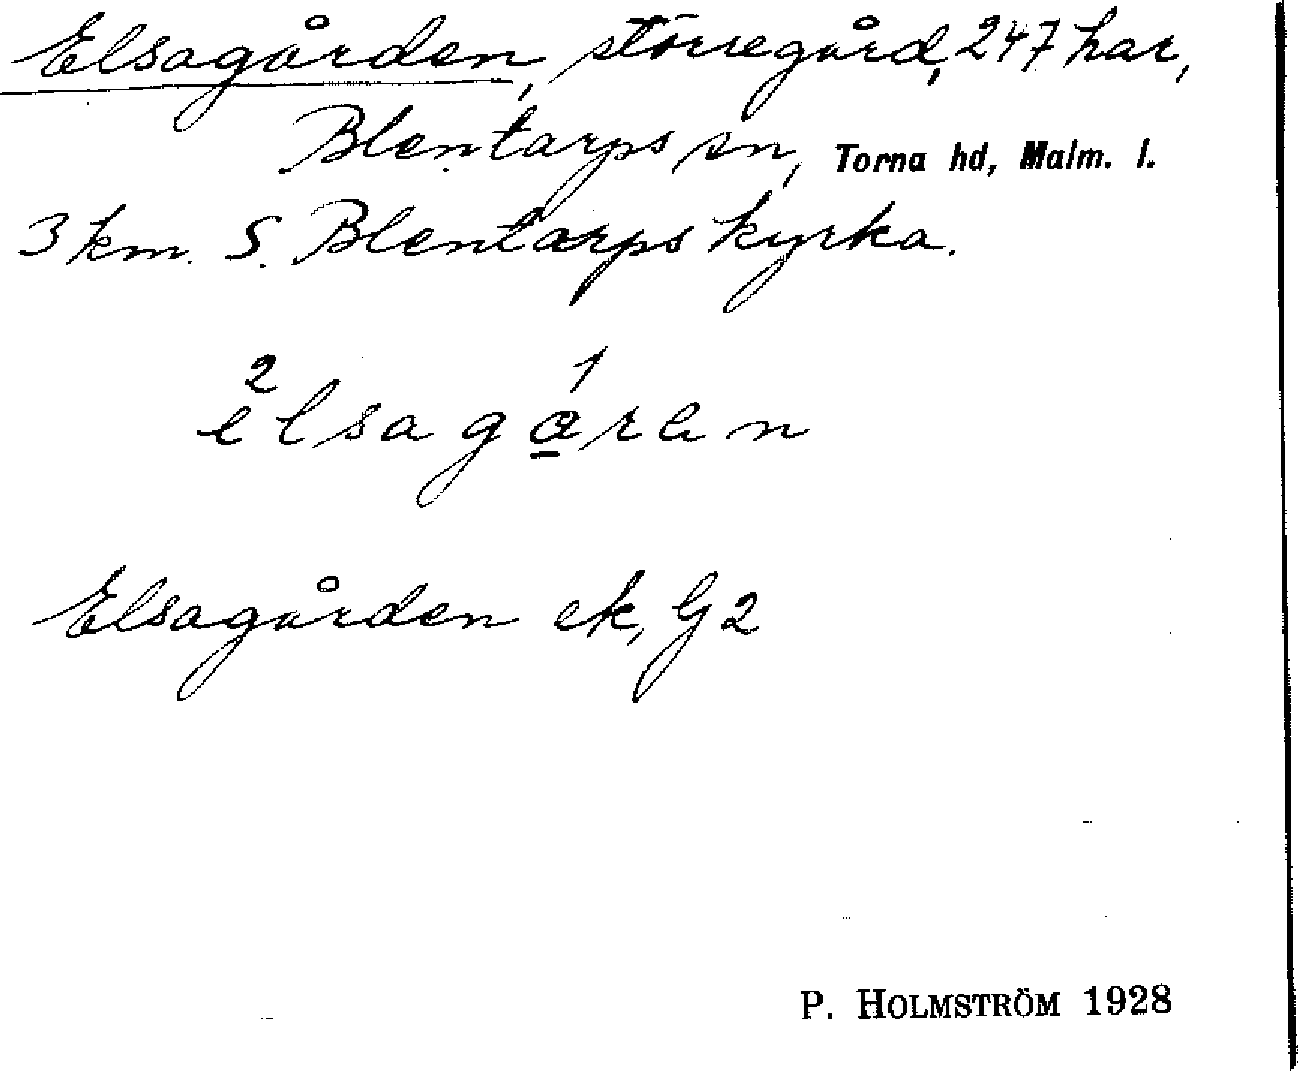 Elsagården, störregård, 247 har,
Blentarps sn, Torna hd, Malm. l.
3 km. S. Blentarps kyrka.
2 1
elsagåren
Elsagården ek, G2
P. HOLMSTRÖM 1928